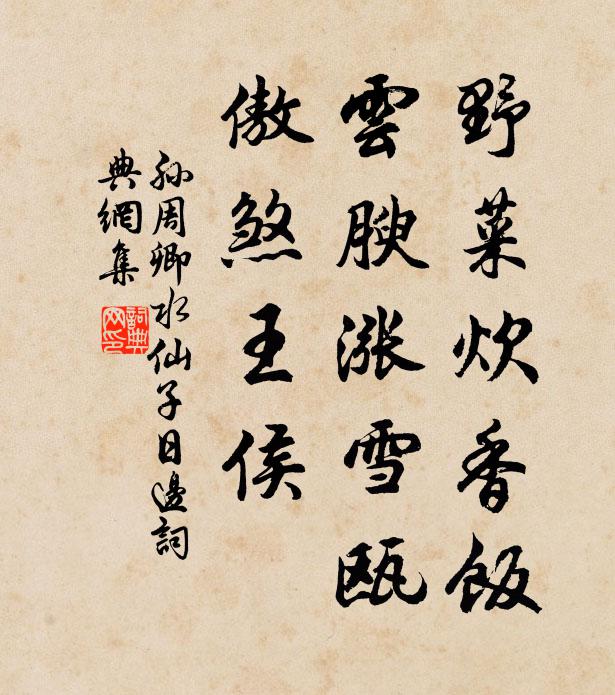 野菜炊香飯
雲腴漲雪甌
傲煞王侯
孫周卿水仙子日邊詞
典網集
詞典
网印